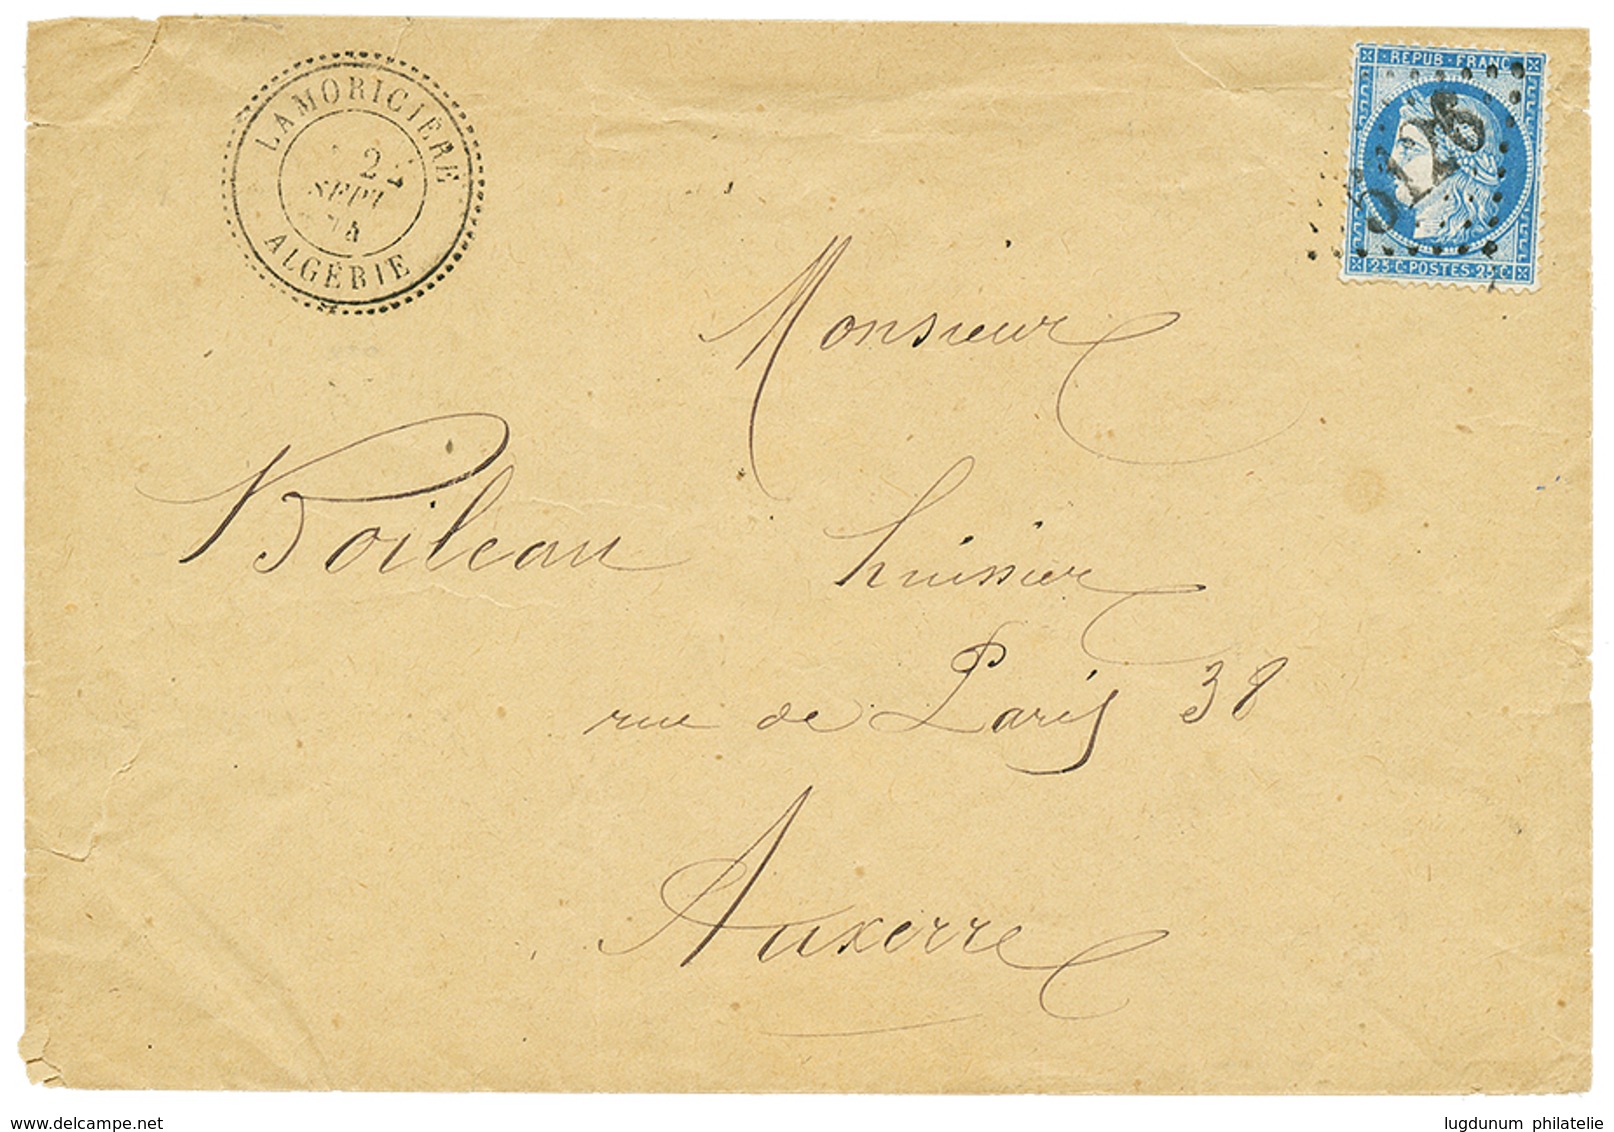 LAMORICIERE
22
SEPT
74
ALGÉRIE
REPUB · FRANC
5126
25 C · POSTES · 25 C
Monsieur
Boileau huissier
rue de Paris 38
Auxerre
lugdunum philatelie